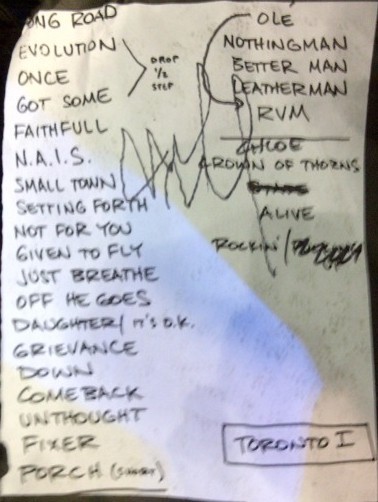 LONG ROAD
EVOLUTION
ONCE
GOT SOME
DROP
1/2
STEP
FAITHFULL
N.A.I.S.
SMALL TOWN
SETTING FORTH
NOT FOR YOU
GIVEN TO FLY
JUST BREATHE
OFF HE GOES
DAUGHTER/IT'S O.K.
GRIEVANCE
DOWN
COMEBACK
UNTHOUGHT
FIXER
PORCH
OLE
NOTHINGMAN
BETTER MAN
LEATHERMAN
RVM
CHLOE
CROWN OF THORNS
ALIVE
ROCKIN'/
TORONTO I